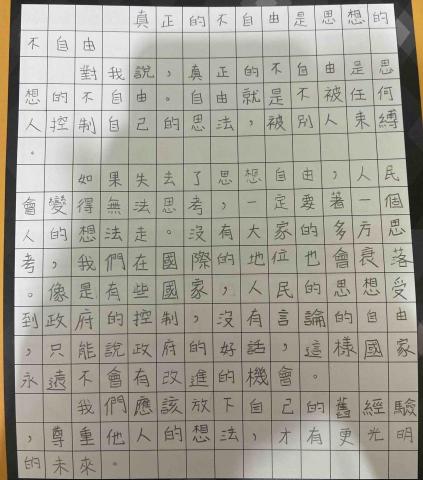 真正的不自由是思想的
不自由
對我說，真正的不自由是思
想的不自由。自由就是不被任何
人控制自己的思法，被別人束縛
。
如果失去了思想自由，人民
會變得無法思考，一定要著一個
人的想法走。沒有大家的多方思
考，我們在國際的地位也會衰落
。像是有些國家，人民的思想受
到政府的控制，沒有言論的自由
，只能說政府的好話，這樣國家
永遠不會有改進的機會。
我們應該放下自己的舊經驗
，尊重他人的想法，才有更光明
的未來。